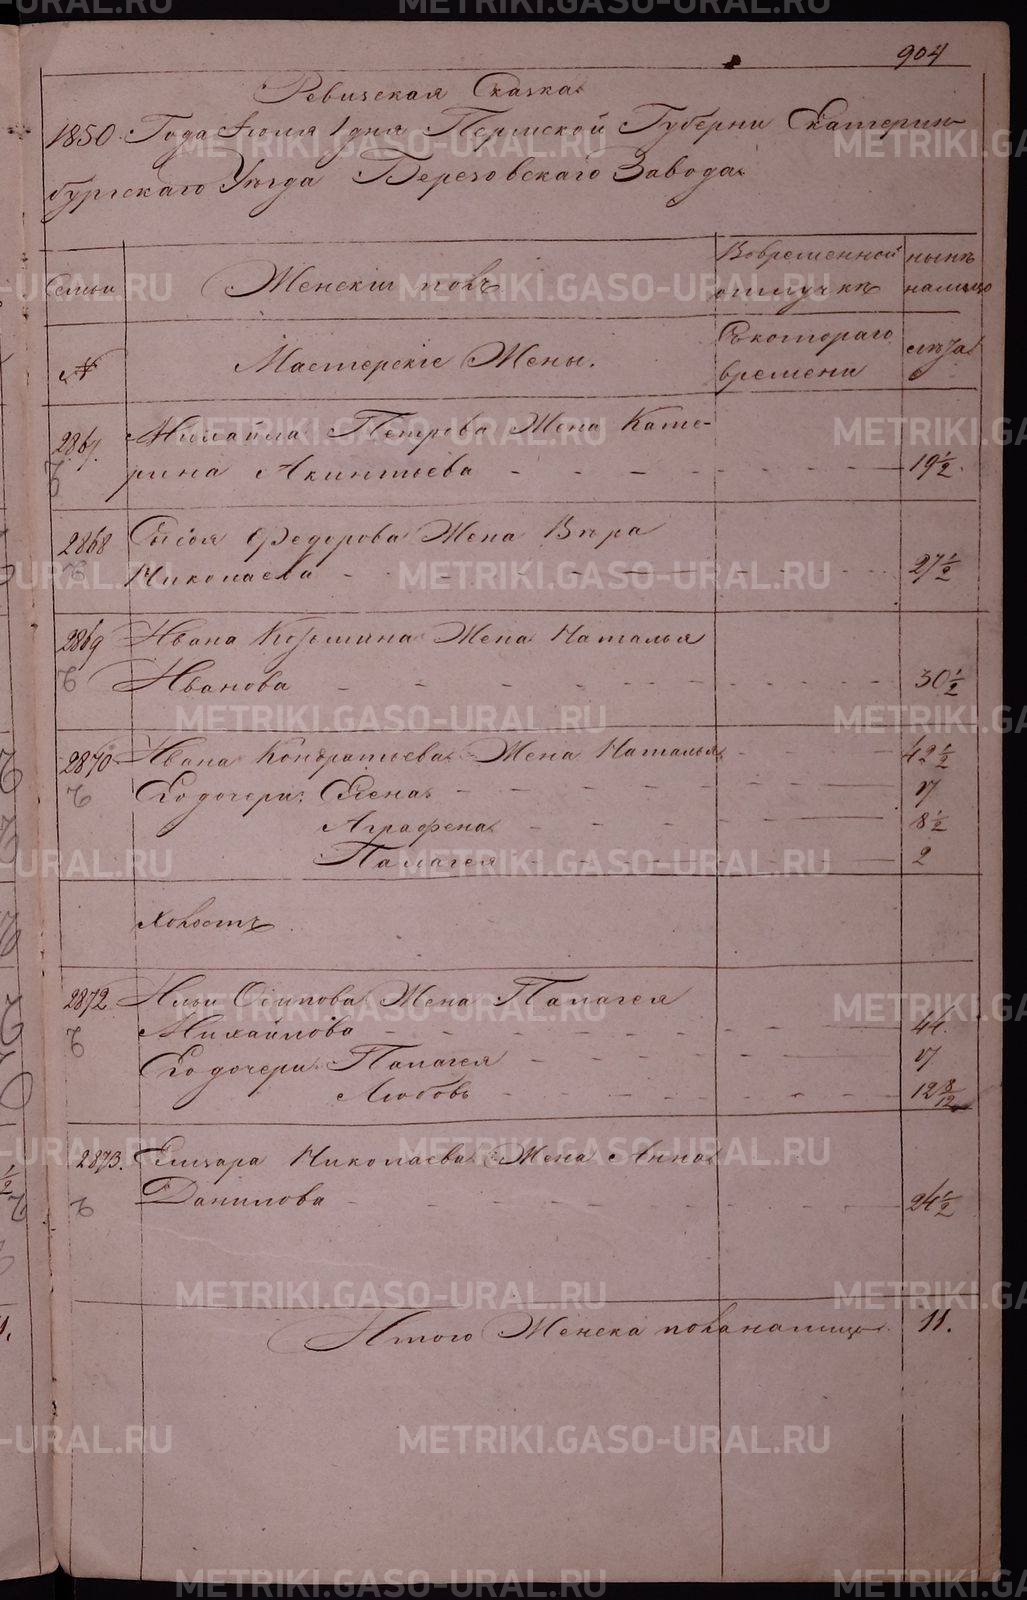 904
Ревизская Сказка
1850 Года Июля 1 дня Пермской Губерни Екатерин-
бургскаго Уѣзда Березовскаго Завода
Семьи
Женскiй полъ
Вовременной отлучкѣ
нынѣ налицо
№
Мастерскiе Жены.
Съкотораго времени
лѣта
2867. Михайла Петрова Жена Кате-
рина Акинтьева - - - - 19 1/2.
2868 Сысоя Федорова Жена Вѣра
Николаева - - - - 27 1/2
2869 Ивана Козьмина Жена Наталья
Иванова - - - - 30 1/2
2870 Ивана Кондратьева Жена Наталья - - - 42 1/2
Его дочери: Елена - - - -
Аграфена - - - - 8 1/2
Палагея - - - - 2
Холостъ
2872 Ильи Осипова Жена Палагея
Михайлова - - - - 44
Его дочери: Палагея - - - -
Любовь - - - - 12 8/12
2873. Елизара Николаева Жена Анна
Данилова - - - - 24 1/2
Итого Женска пола налицо 11.
METRIKI.GASO-URAL.RU